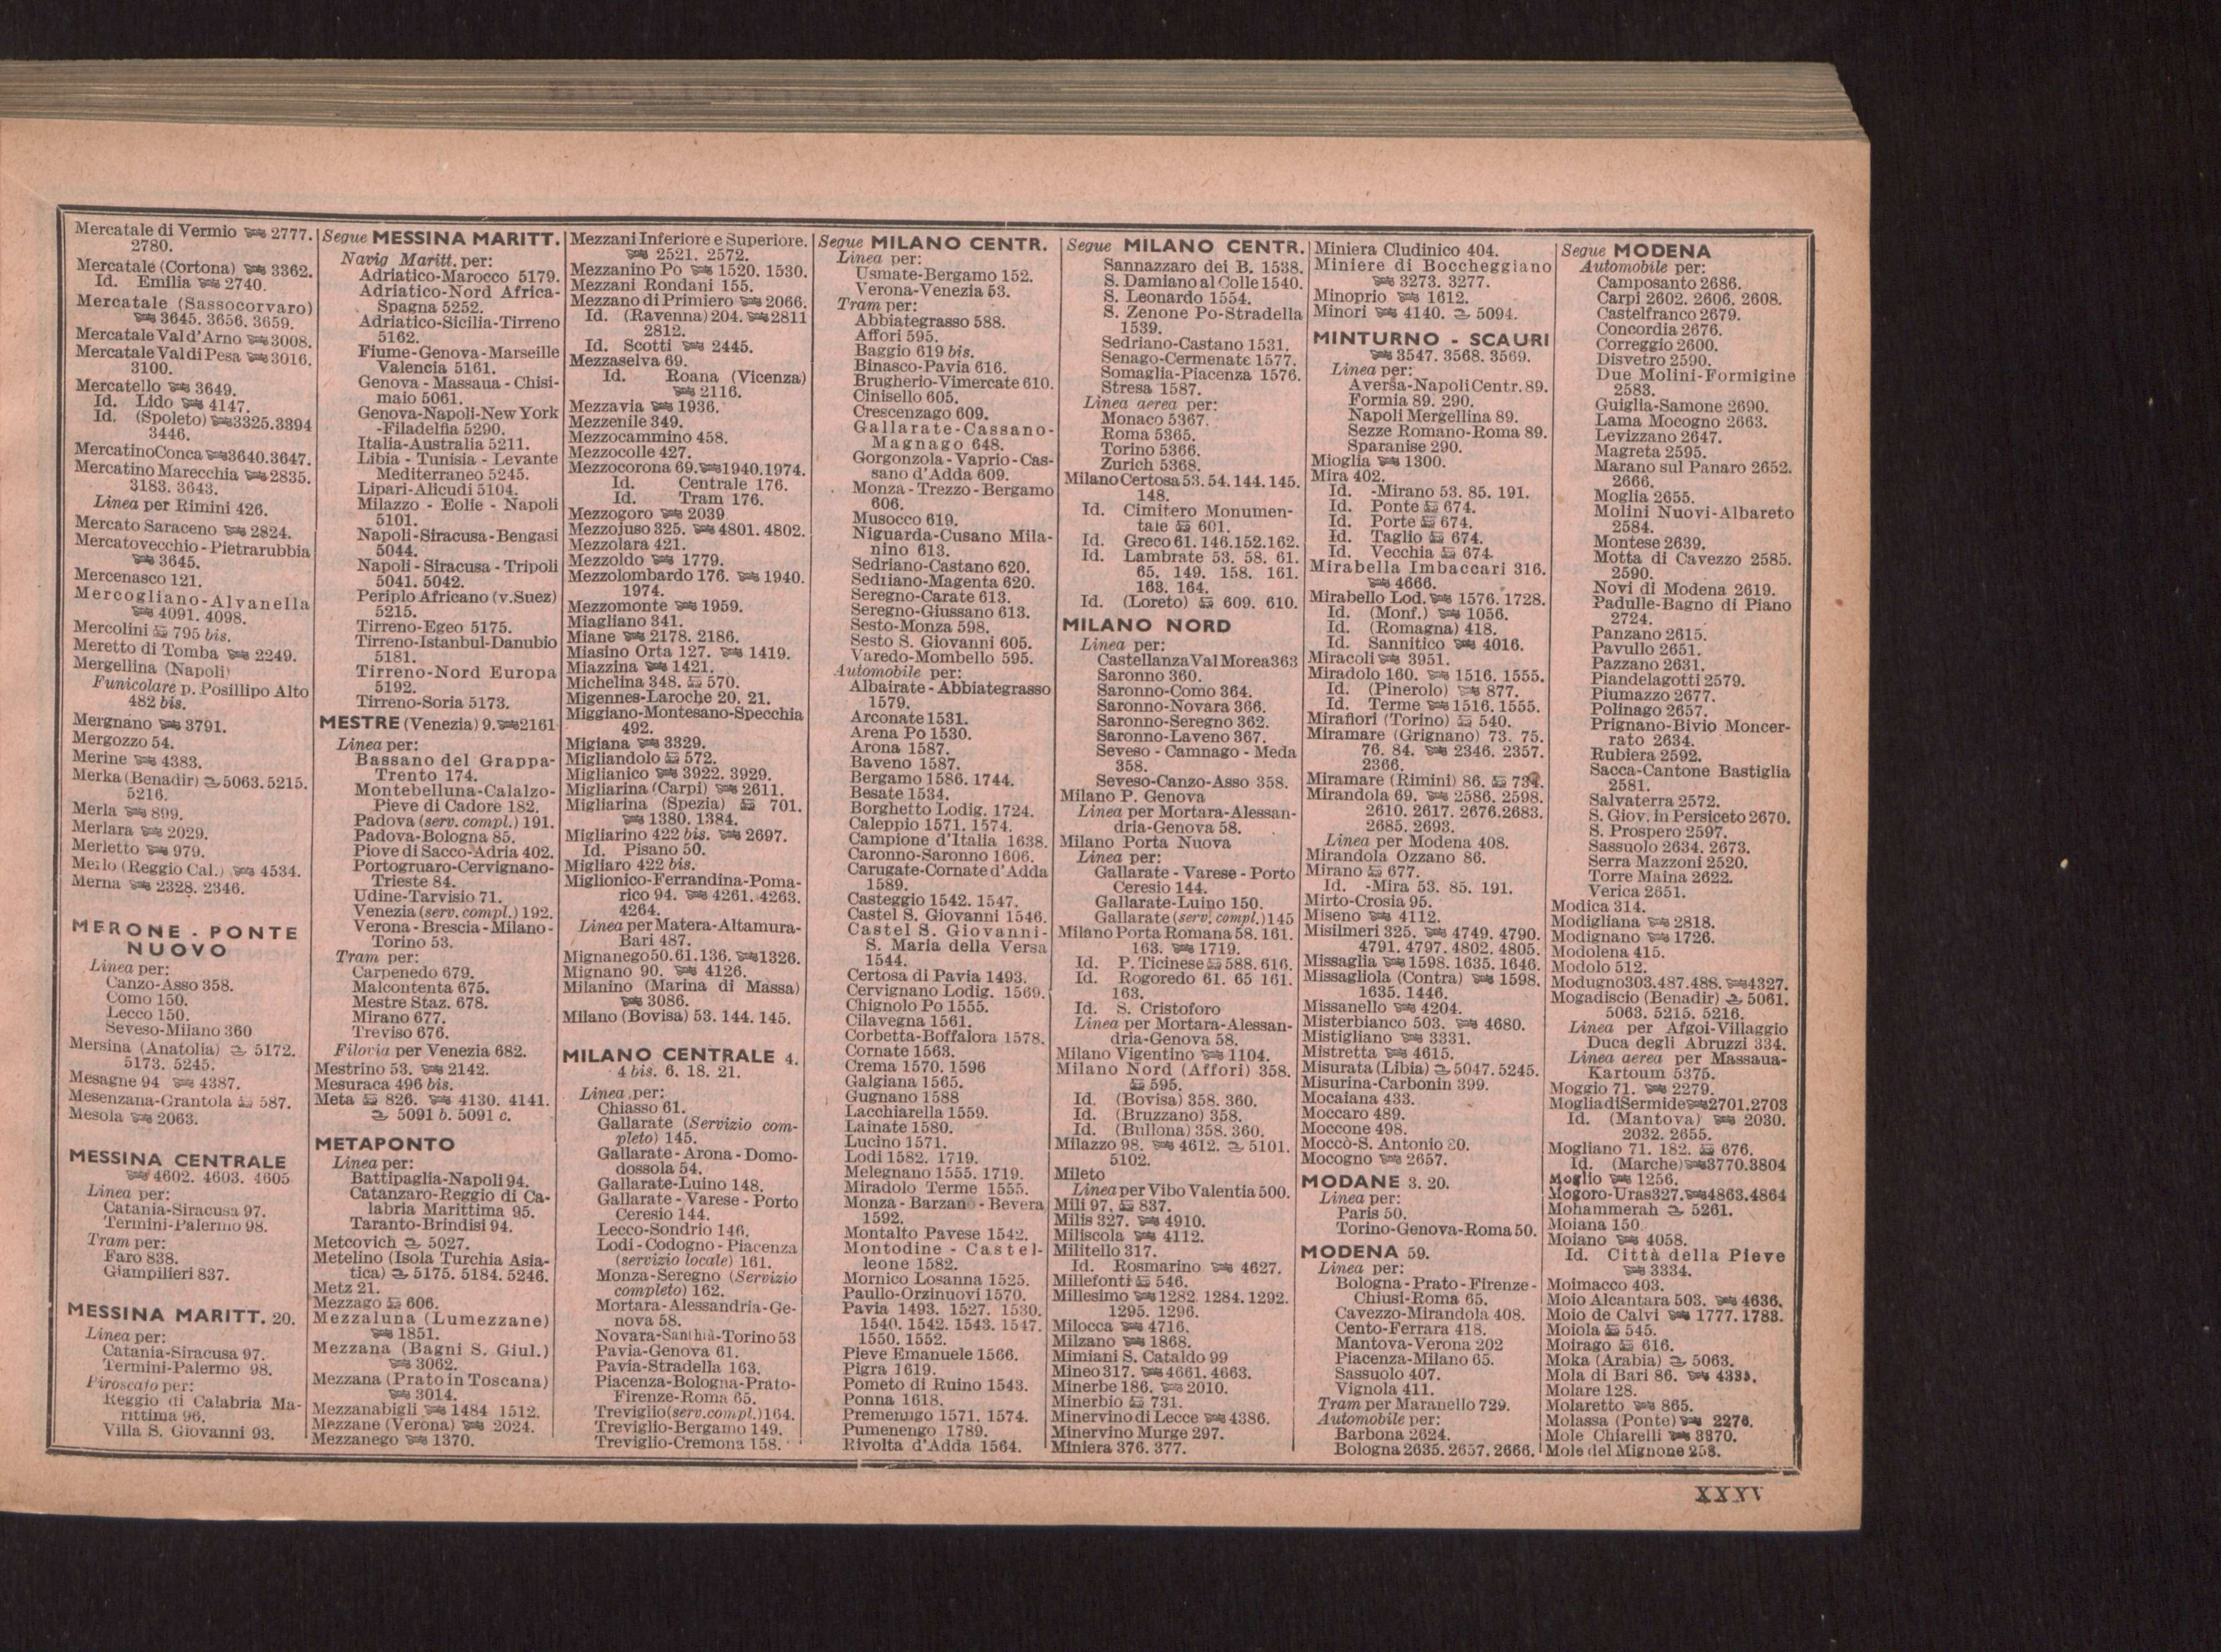 Mercatale di Vermio 2777.
2780.
Mercatale (Cortona) 3362.
Id. Emilia 2740.
Mercatale (Sassocorvaro)
3645. 3656. 3659.
Mercatale Val d'Arno 3008.
Mercatale Val di Pesa 3016.
3100.
Mercatello 3649.
Id. Lido 4147.
Id. (Spoleto) 3325.3394
3446.
Mercatino Conca 3640.3647.
Mercatino Marecchia 2835.
3183. 3643.
Linea per Rimini 426.
Mercato Saraceno 2824.
Mercatovecchio - Pietrarubbia
3645.
Mercenasco 121.
Mercogliano-Alvanella
4091. 4098.
Mercolini 795 bis.
Meretto di Tomba 2249.
Mergellina (Napoli)
Funicolare p. Posillipo Alto
482 bis.
Mergnano 3791.
Mergozzo 54.
Merine 4383.
Merka (Benadir) 5063. 5215.
5216.
Merla 899.
Merlara 2029.
Merletto 979.
Merlo (Reggio Cal.) 4534.
Merna 2328. 2346.
MERONE - PONTE
NUOVO
Linea per:
Canzo-Asso 358.
Como 150.
Lecco 150.
Seveso-Milano 360
Mersina (Anatolia) 5172.
5173. 5245.
Mesagne 94 4387.
Mesenzana-Grantola 587.
Mesola 2063.
MESSINA CENTRALE
4602. 4603. 4605
Linea per:
Catania-Siracusa 97.
Termini-Palermo 98.
Tram per:
Faro 838.
Giampilieri 837.
MESSINA MARITT. 20.
Linea per:
Catania-Siracusa 97.
Termini-Palermo 98.
Piroscafo per:
Reggio di Calabria Ma-
rittima 96.
Villa S. Giovanni 93.
Segue MESSINA MARITT.
Navig Maritt. per:
Adriatico-Marocco 5179.
Adriatico-Nord Africa-
Spagna 5252.
Adriatico-Sicilia-Tirreno
5162.
Fiume-Genova-Marseille
Valencia 5161.
Genova - Massaua - Chisi-
maio 5061.
Genova-Napoli-New York
-Filadelfia 5290.
Italia-Australia 5211.
Libia - Tunisia - Levante
Mediterraneo 5245.
Lipari-Alicudi 5104.
Milazzo - Eolie - Napoli
5101.
Napoli-Siracusa-Bengasi
5044.
Napoli - Siracusa - Tripoli
5041. 5042.
Periplo Africano (v.Suez)
5215.
Tirreno-Egeo 5175.
Tirreno-Istanbul-Danubio
5181.
Tirreno-Nord Europa
5192.
Tirreno-Soria 5173.
MESTRE (Venezia) 9. 2161
Linea per:
Bassano del Grappa-
Trento 174.
Montebelluna-Calalzo-
Pieve di Cadore 182.
Padova (serv. compl.) 191.
Padova-Bologna 85.
Piove di Sacco-Adria 402.
Portogruaro-Cervignano-
Trieste 84.
Udine-Tarvisio 71.
Venezia (serv. compl.) 192.
Verona - Brescia - Milano -
Torino 53.
Tram per:
Carpenedo 679.
Malcontenta 675.
Mestre Staz. 678.
Mirano 677.
Treviso 676.
Filovia per Venezia 682.
Mestrino 53. 2142.
Mesuraca 496 bis.
Meta 826. 4130. 4141.
5091 b. 5091 c.
METAPONTO
Linea per:
Battipaglia-Napoli 94.
Catanzaro-Reggio di Ca-
labria Marittima 95.
Taranto-Brindisi 94.
Metcovich 5027.
Metelino (Isola Turchia Asia-
tica) 5175. 5184. 5246.
Metz 21.
Mezzago 606.
Mezzaluna (Lumezzane)
1851.
Mezzana (Bagni S. Giul.)
3062.
Mezzana (Prato in Toscana)
3014.
Mezzanabigli 1484 1512.
Mezzane (Verona) 2024.
Mezzanego 1370.
Mezzani Inferiore e Superiore.
2521. 2572.
Mezzanino Po 1520. 1530.
Mezzani Rondani 155.
Mezzano di Primiero 2066.
Id. (Ravenna) 204. 2811
2812.
Id. Scotti 2445.
Mezzaselva 69.
Id. Roana (Vicenza)
2116.
Mezzavia 1936.
Mezzenile 349.
Mezzocammino 458.
Mezzocolle 427.
Mezzocorona 69. 1940.1974.
Id. Centrale 176.
Id. Tram 176.
Mezzogoro 2039
Mezzojuso 325. 4801. 4802.
Mezzolara 421.
Mezzoldo 1779.
Mezzolombardo 176. 1940.
1974.
Mezzomonte 1959.
Miagliano 341.
Miane 2178. 2186.
Miasino Orta 127. 1419.
Miazzina 1421.
Michelina 348. 570.
Migennes-Laroche 20. 21.
Miggiano-Montesano-Specchia
492.
Migiana 3329.
Migliandolo 572.
Miglianico 3922. 3929.
Migliarina (Carpi) 2611.
Migliarina (Spezia) 701.
1380. 1384.
Migliarino 422 bis. 2697.
Id. Pisano 50.
Migliaro 422 bis.
Miglionico-Ferrandina-Poma-
rico 94. 4261. 4263.
4264.
Linea per Matera-Altamura-
Bari 487.
Mignanego 50. 61. 136. 1326.
Mignano 90. 4126.
Milanino (Marina di Massa)
3086.
Milano (Bovisa) 53. 144. 145.
MILANO CENTRALE 4.
4 bis. 6. 18. 21.
Linea per:
Chiasso 61.
Gallarate (Servizio com-
pleto) 145.
Gallarate - Arona - Domo-
dossola 54.
Gallarate-Luino 148.
Gallarate - Varese - Porto
Ceresio 144.
Lecco-Sondrio 146.
Lodi - Codogno - Piacenza
(servizio locale) 161.
Monza-Seregno (Servizio
completo) 162.
Mortara-Alessandria-Ge-
nova 58.
Novara-Santhià-Torino 53
Pavia-Genova 61.
Pavia-Stradella 163.
Piacenza-Bologna-Prato-
Firenze-Roma 65.
Treviglio (serv. compl.) 164.
Treviglio-Bergamo 149.
Treviglio-Cremona 158.
Segue MILANO CENTR.
Linea per:
Usmate-Bergamo 152.
Verona-Venezia 53.
Tram per:
Abbiategrasso 588.
Affori 595.
Baggio 619 bis.
Binasco-Pavia 616.
Brugherio-Vimercate 610.
Cinisello 605.
Crescenzago 609.
Gallarate-Cassano-
Magnago 648.
Gorgonzola - Vaprio - Cas-
sano d'Adda 609.
Monza - Trezzo - Bergamo
606.
Musocco 619.
Niguarda-Cusano Mila-
nino 613.
Sedriano-Castano 620.
Sedriano-Magenta 620.
Seregno-Carate 613.
Seregno-Giussano 613.
Sesto-Monza 598.
Sesto S. Giovanni 605.
Varedo-Mombello 595.
Automobile per:
Albairate - Abbiategrasso
1579.
Arconate 1531.
Arena Po 1530.
Arona 1587.
Baveno 1587.
Bergamo 1586. 1744.
Besate 1534.
Borghetto Lodig. 1724.
Caleppio 1571. 1574.
Campione d'Italia 1638.
Caronno-Saronno 1606.
Carugate-Cornate d'Adda
1589.
Casteggio 1542. 1547.
Castel S. Giovanni 1546.
Castel S. Giovanni-
S. Maria della Versa
1544.
Certosa di Pavia 1493.
Cervignano Lodig. 1569.
Chignolo Po 1555.
Cilavegna 1561.
Corbetta-Boffalora 1578.
Cornate 1563.
Crema 1570. 1596
Galgiana 1565.
Gugnano 1588
Lacchiarella 1559.
Lainate 1580.
Lucino 1571.
Lodi 1582. 1719.
Melegnano 1555. 1719.
Miradolo Terme 1555.
Monza - Barzano - Bevera
1592.
Montalto Pavese 1542.
Montodine - Castel-
leone 1582.
Mornico Losanna 1525.
Paullo-Orzinuovi 1570.
Pavia 1493. 1527. 1530.
1540. 1542. 1543. 1547.
1550. 1552.
Pieve Emanuele 1566.
Pigra 1619.
Pometo di Ruino 1543.
Ponna 1618.
Premenugo 1571. 1574.
Pumenengo 1789.
Rivolta d'Adda 1564.
Segue MILANO CENTR.
Sannazzaro dei B. 1538.
S. Damiano al Colle 1540.
S. Leonardo 1554.
S. Zenone Po-Stradella
1539.
Sedriano-Castano 1531.
Senago-Cermenate 1577.
Somaglia-Piacenza 1576.
Stresa 1587.
Linea aerea per:
Monaco 5367.
Roma 5365.
Torino 5366.
Zurich 5368.
Milano Certosa 53. 54. 144. 145.
148.
Id. Cimitero Monumen-
tale 601.
Id. Greco 61. 146. 152. 162.
Id. Lambrate 53. 58. 61.
65. 149. 158. 161.
163. 164.
Id. (Loreto) 609. 610.
MILANO NORD
Linea per:
Castellanza Val Morea 363
Saronno 360.
Saronno-Como 364.
Saronno-Novara 366.
Saronno-Seregno 362.
Saronno-Laveno 367.
Seveso - Camnago - Meda
358.
Seveso-Canzo-Asso 358.
Milano P. Genova
Linea per Mortara-Alessan-
dria-Genova 58.
Milano Porta Nuova
Linea per:
Gallarate - Varese - Porto
Ceresio 144.
Gallarate-Luino 150.
Gallarate (serv. compl.) 145
Milano Porta Romana 58. 161.
163. 1719.
Id. P. Ticinese 588. 616.
Id. Rogoredo 61. 65 161.
163.
Id. S. Cristoforo
Linea per Mortara-Alessan-
dria-Genova 58.
Milano Vigentino 1104.
Milano Nord (Affori) 358.
595.
Id. (Bovisa) 358. 360.
Id. (Bruzzano) 358.
Id. (Bullona) 358. 360.
Milazzo 98. 4612. 5101.
5102.
Mileto
Linea per Vibo Valentia 500.
Mili 97. 837.
Milis 327. 4910.
Miliscola 4112.
Militello 317.
Id. Rosmarino 4627.
Millefonti 546.
Millesimo 1282. 1284. 1292.
1295. 1296.
Milocca 4716.
Milzano 1868.
Mimiani S. Cataldo 99
Mineo 317. 4661. 4663.
Minerbe 186. 2010.
Minerbio 731.
Minervino di Lecce 4386.
Minervino Murge 297.
Miniera 376. 377.
Miniera Cludinico 404.
Miniere di Boccheggiano
3273. 3277.
Minoprio 1612.
Minori 4140. 5094.
MINTURNO - SCAURI
3547. 3568. 3569.
Linea per:
Aversa-Napoli Centr. 89.
Formia 89. 290.
Napoli Mergellina 89.
Sezze Romano-Roma 89.
Sparanise 290.
Mioglia 1300.
Mira 402.
Id. -Mirano 53. 85. 191.
Id. Ponte 674.
Id. Porte 674.
Id. Taglio 674.
Id. Vecchia 674.
Mirabella Imbaccari 316.
4666.
Mirabello Lod. 1576. 1728.
Id. (Monf.) 1056.
Id. (Romagna) 418.
Id. Sannitico 4016.
Miracoli 3951.
Miradolo 160. 1516. 1555.
Id. (Pinerolo) 877.
Id. Terme 1516. 1555.
Mirafiori (Torino) 540.
Miramare (Grignano) 73. 75.
76. 84. 2346. 2357.
2366.
Miramare (Rimini) 86. 734.
Mirandola 69. 2586. 2598.
2610. 2617. 2676. 2683.
2685. 2693.
Linea per Modena 408.
Mirandola Ozzano 86.
Mirano 677.
Id. -Mira 53. 85. 191.
Mirto-Crosia 95.
Miseno 4112.
Misilmeri 325. 4749. 4790.
4791. 4797. 4802. 4805.
Missaglia 1598. 1635. 1646.
Missagliola (Contra) 1598.
1635. 1446.
Missanello 4204.
Misterbianco 503. 4680.
Mistigliano 3331.
Mistretta 4615.
Misurata (Libia) 5047. 5245.
Misurina-Carbonin 399.
Mocaiana 433.
Moccaro 489.
Moccone 498.
Moccò-S. Antonio 80.
Mocogno 2657.
MODANE 3. 20.
Linea per:
Paris 50.
Torino-Genova-Roma 50.
MODENA 59.
Linea per:
Bologna - Prato - Firenze -
Chiusi-Roma 65.
Cavezzo-Mirandola 408.
Cento-Ferrara 418.
Mantova-Verona 202
Piacenza-Milano 65.
Sassuolo 407.
Vignola 411.
Tram per Maranello 729.
Automobile per:
Barbona 2624.
Bologna 2635. 2657. 2666.
Segue MODENA
Automobile per:
Camposanto 2686.
Carpi 2602. 2606. 2608.
Castelfranco 2679.
Concordia 2676.
Correggio 2600.
Disvetro 2590.
Due Molini-Formigine
2583.
Guiglia-Samone 2690.
Lama Mocogno 2663.
Levizzano 2647.
Magreta 2595.
Marano sul Panaro 2652.
2666.
Moglia 2655.
Molini Nuovi-Albareto
2584.
Montese 2639.
Motta di Cavezzo 2585.
2590.
Novi di Modena 2619.
Padulle-Bagno di Piano
2724.
Panzano 2615.
Pavullo 2651.
Pazzano 2631.
Piandelagotti 2579.
Piumazzo 2677.
Polinago 2657.
Prignano-Bivio Moncer-
rato 2634.
Rubiera 2592.
Sacca-Cantone Bastiglia
2581.
Salvaterra 2572.
S. Giov. in Persiceto 2670.
S. Prospero 2597.
Sassuolo 2634. 2673.
Serra Mazzoni 2520.
Torre Maina 2622.
Verica 2651.
Modica 314.
Modigliana 2818.
Modignano 1726.
Modolena 415.
Modolo 512.
Modugno 303. 487. 488. 4327.
Mogadiscio (Benadir) 5061.
5063. 5215. 5216.
Linea per Afgoi-Villaggio
Duca degli Abruzzi 334.
Linea aerea per Massaua-
Kartoum 5375.
Moggio 71. 2279.
Moglia di Sermide 2701. 2703
Id. (Mantova) 2030.
2032. 2655.
Mogliano 71. 182. 676.
Id. (Marche) 3770. 3804
Moglio 1256.
Mogoro-Uras 327. 4863. 4864
Mohammerah 5261.
Moiana 150
Moiano 4058.
Id. Città della Pieve
3334.
Moimacco 403.
Moio Alcantara 503. 4636.
Moio de Calvi 1777. 1783.
Moiola 545.
Moirago 616.
Moka (Arabia) 5063.
Mola di Bari 86.
Molare 128.
Molaretto 865.
Molassa (Ponte) 2276.
Mole Chiarelli 3870.
Mole del Mignone 258.
XXXV